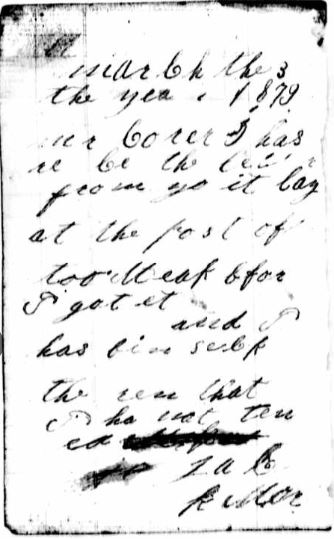 march the 3
the yea 1879
mr Corer I has
re be the letter
from yo it lay
at the post of
too Weak bfor
I got it
and I
has bin seek
the ren that
I ha not ten
ed